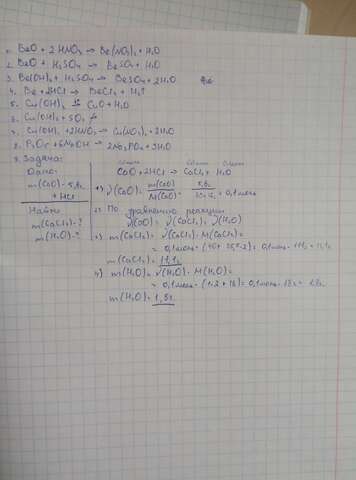 1. BeO + 2HNO₃ → Be(NO₃)₂ + H₂O
2. BeO + H₂SO₄ → BeSO₄ + H₂O
3. Be(OH)₂ + H₂SO₄ → BeSO₄ + 2H₂O
4. Be + 2HCl → BeCl₂ + H₂↑
5. Cu(OH)₂ → CuO + H₂O
6. Cu(OH)₂ + SO₂ ≠
7. Cu(OH)₂ + 2HNO₃ → Cu(NO₃)₂ + 2H₂O
8. P₂O₅ + 6NaOH → 2Na₃PO₄ + 3H₂O
9. Задача:
Дано:
m(CaO) = 5,6г
+ HCl
Найти:
m(CaCl₂) - ?
m(H₂O) - ?
CaO + 2HCl → CaCl₂ + H₂O
1) ν(CaO) = m(CaO) / M(CaO) = = 0,1 моль
2) По уравнению реакции
ν(CaO) = ν(CaCl₂) = ν(H₂O)
3) m(CaCl₂) = ν(CaCl₂) · M(CaCl₂) =
= 0,1 моль · (40 + 35,5·2) = 0,1 моль · 111 = 11,1г
m(CaCl₂) = 11,1г
4) m(H₂O) = ν(H₂O) · M(H₂O) =
= 0,1 моль · (1·2 + 16) = 0,1 моль · 18г = 1,8г
m(H₂O) = 1,8г